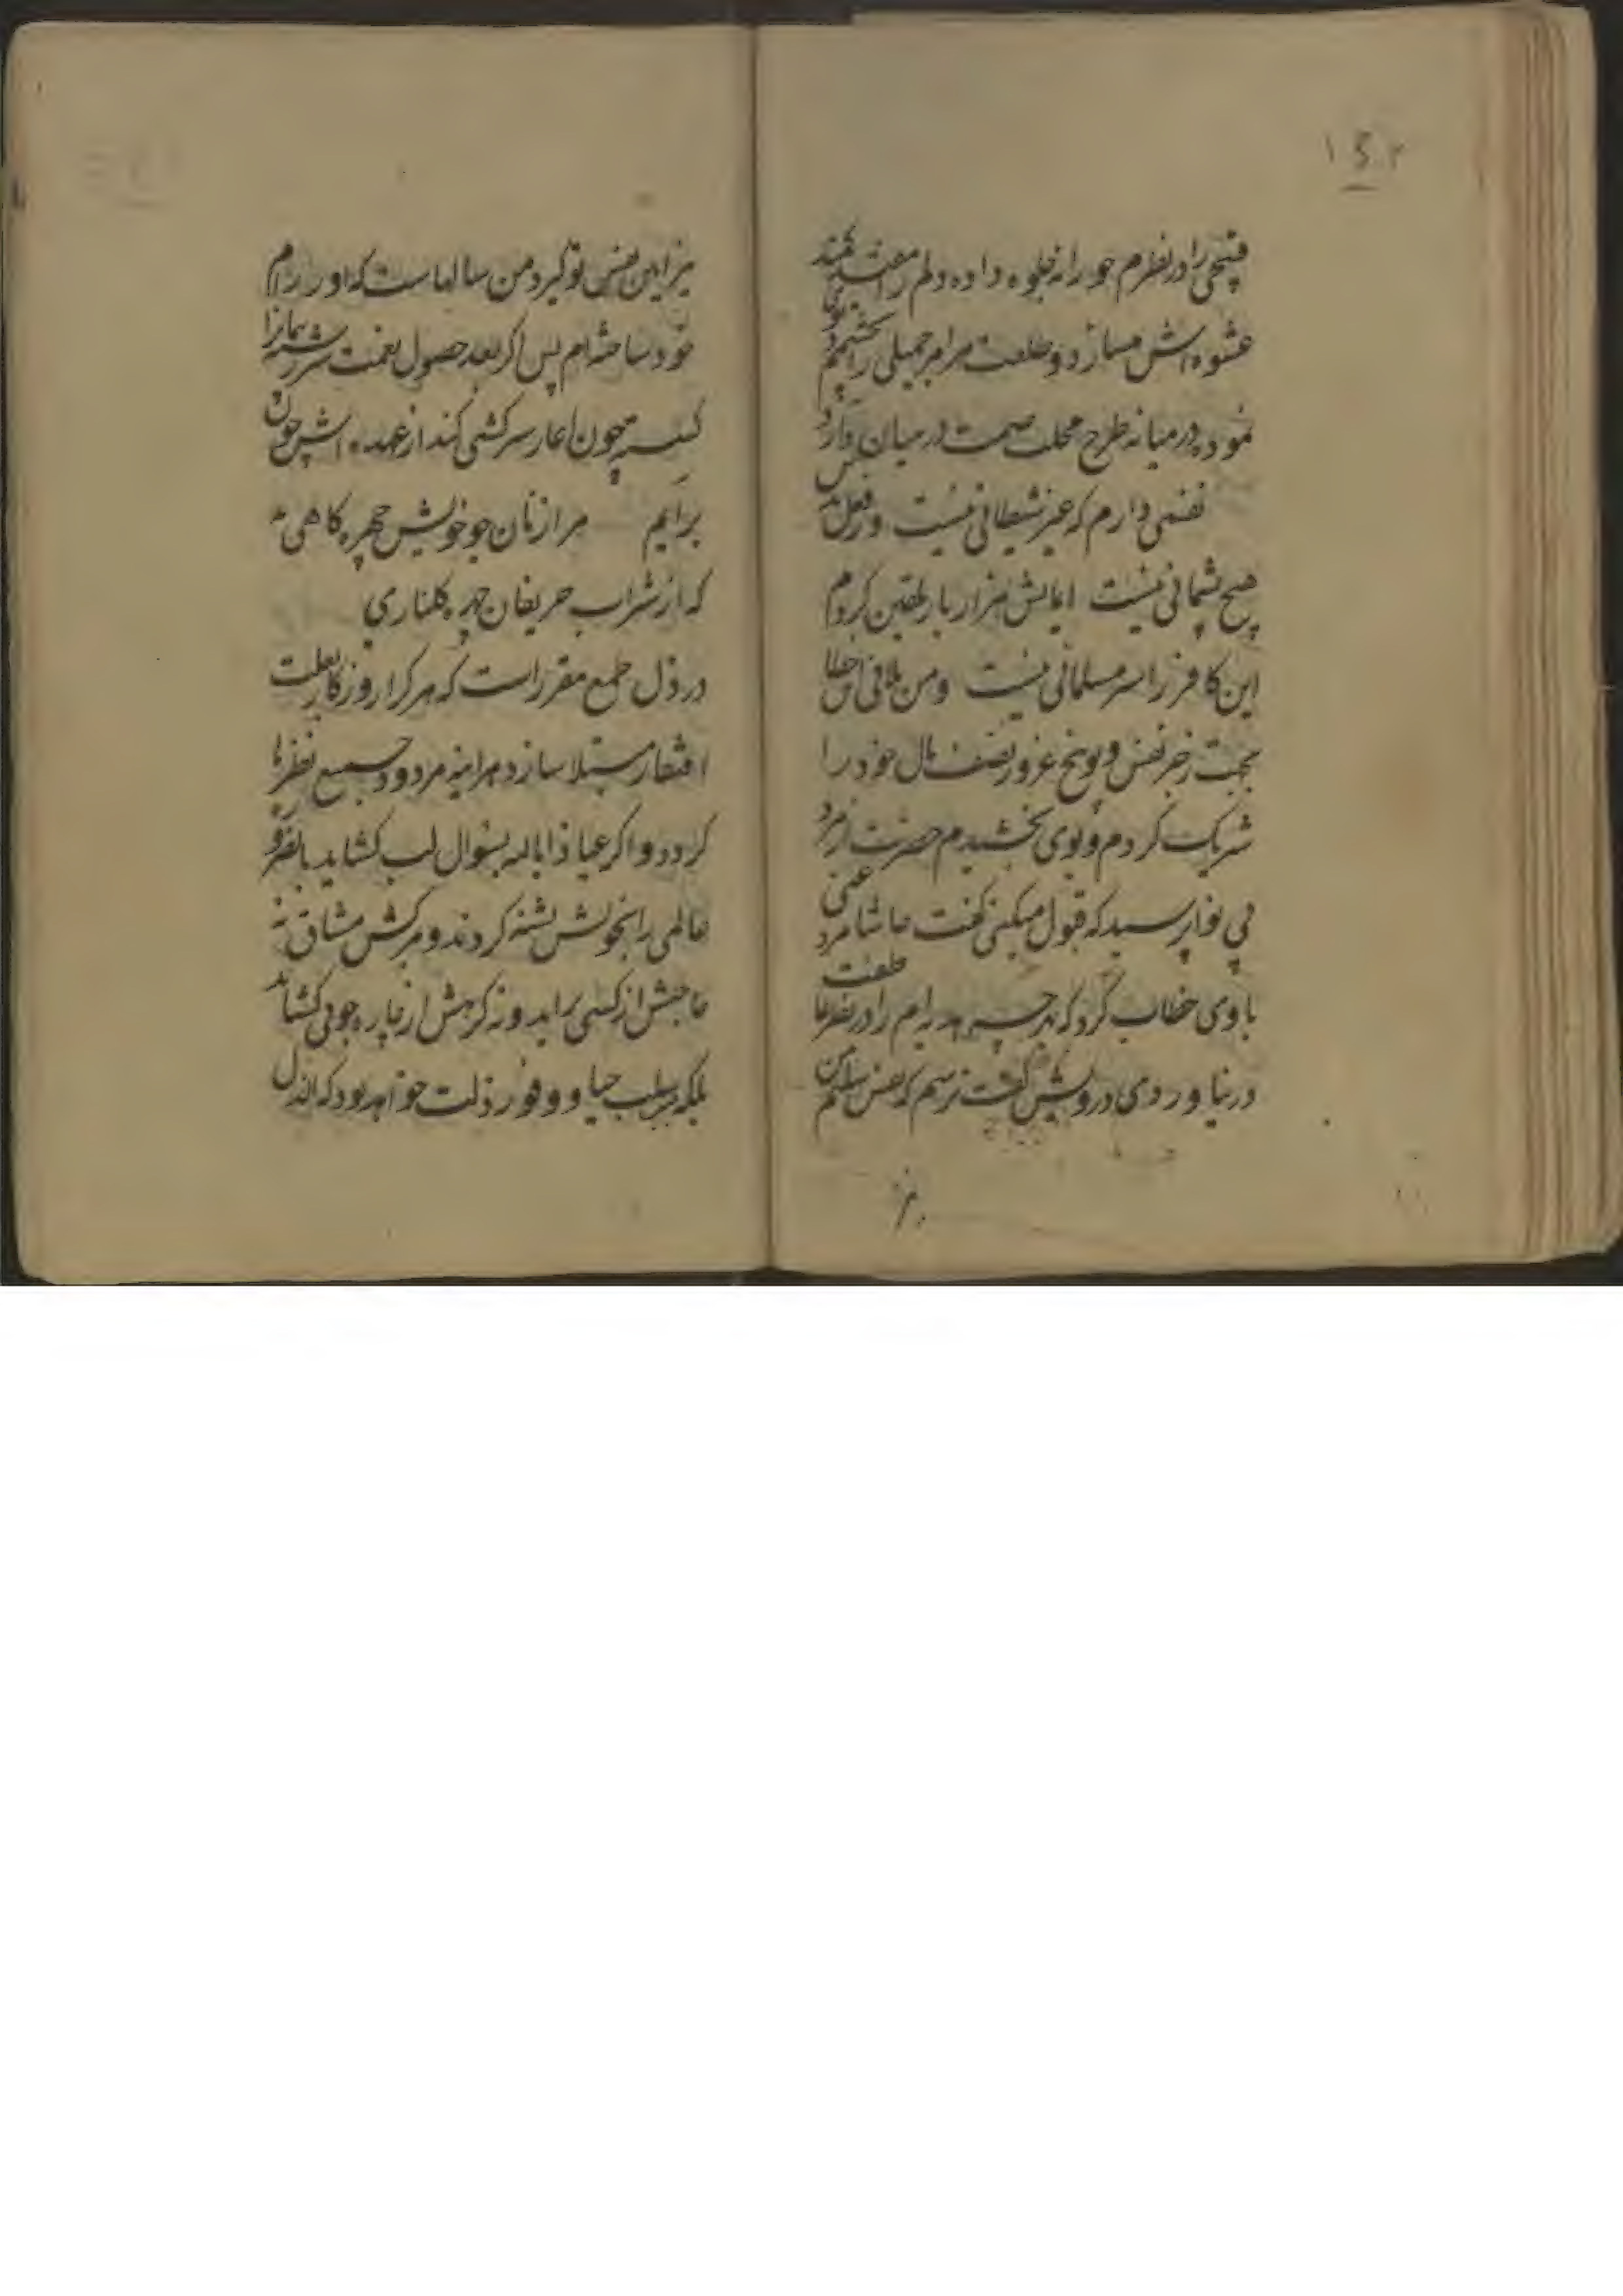 ۱۵۲
قبیحی را در نظرم حورانه جلوه داده دلم را مفتون
عشوه اش میسازد و طلعت هر امر جمیلی را بچشم
نموده در میانه طرح صحبت در میان دارد
نفسی دارم که غیر شیطانی نیست و ز فعل بدش
هیچ پشیمانی نیست ایمانش هزار بار تلقین کردم
این کافر را سر مسلمانی نیست و من بتلافی این خطا
بجهت زجر نفس و توبیخ غرور نصف مال خود را
شریک کردم و بوی بخشیدم حضرت از مرد
بی نوا پرسید که قبول میکنی گفت حاشا مرد غنی
باوی خطاب کرد که هر چه هدیه ام را در نظر
در نیاوردی درویش گفت ترسم که نفس سالم من
نیز
نیز این نفس تو گیرد من سالهاست که او را رام
خود ساخته ام پس اگر بعد حصول نعمت سر رشته
چون اعار سرکشی کند از عهده اش چون
برایم مرا ز نان جو خویش چهره کاهی به
که از شراب حریفان چهره گلناری
در ذل طمع مقرر است که هر کرا روزگار بعلت
افتقار مبتلا سازد هر اینه مردود جمیع نظرها
گردد و اگر عیاذا بالله بسؤال لب کشاید بالضروره
عالمی را بخونش تشنه گردند و مرگش مشتاق نه
حاجتش از کسی براید و نه گرهش از چاره جوئی کشاید
بلکه سلب حیا و وفور ذلت خواهد بود که